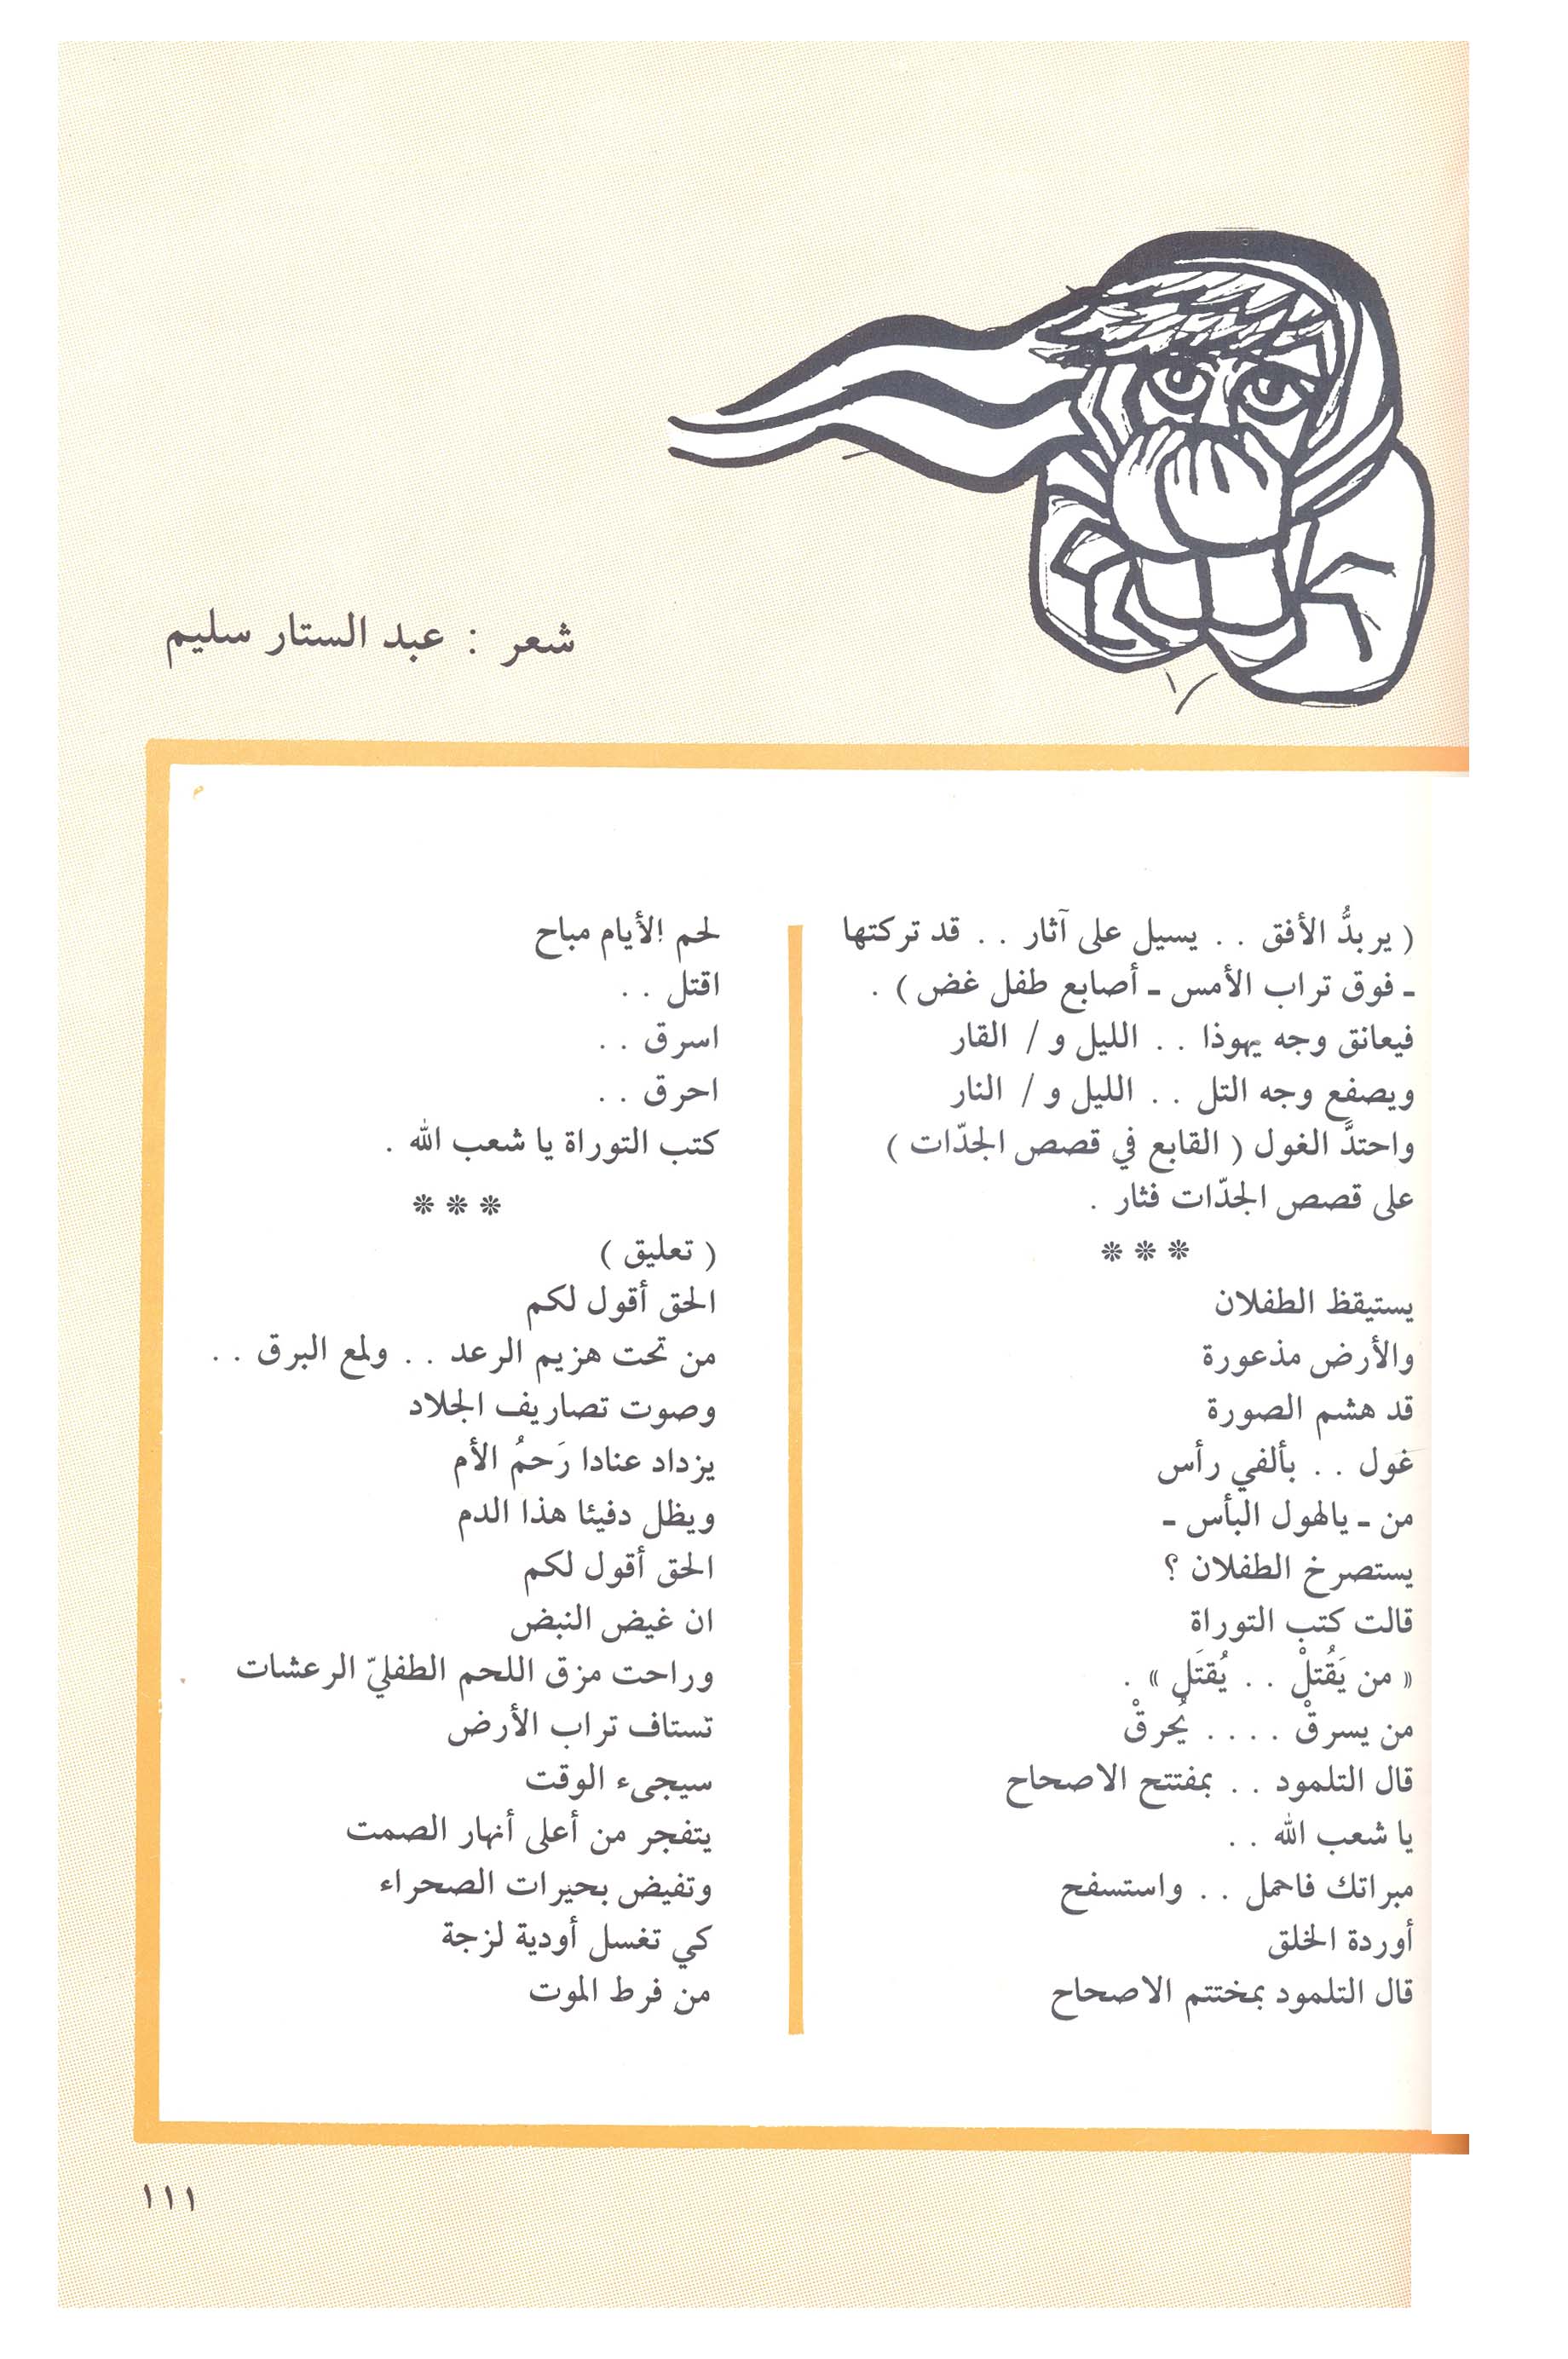 شعر : عبد الستار سليم
( يربدُّ الأفق . . يسيل على آثار . . قد تركتها
ـ فوق تراب الأمس ـ أصابع طفل غض ) .
فيعانق وجه يهوذا . . الليل و / القار
ويصفع وجه التل . . الليل و / النار
واحتدَّ الغول ( القابع في قصص الجدّات )
على قصص الجدّات فثار .
* * *
يستيقظ الطفلان
والأرض مذعورة
قد هشم الصورة
غول . . بألفي رأس
من ـ يالهول البأس ـ
يستصرخ الطفلان ؟
قالت كتب التوراة
« من يَقْتلْ . . يُقتَل » .
من يسرقْ . . . . يُحرقْ
قال التلمود . . بمفتتح الاصحاح
يا شعب الله . .
مبراتك فاحمل . . واستسفح
أوردة الخلق
قال التلمود بمختتم الاصحاح
لحم الأيام مباح
اقتل . .
اسرق . .
احرق . .
كتب التوراة يا شعب الله .
* * *
( تعليق )
الحق أقول لكم
من تحت هزيم الرعد . . ولمع البرق . .
وصوت تصاريف الجلاد
يزداد عنادا رَحمُ الأم
ويظل دفيئا هذا الدم
الحق أقول لكم
ان غيض النبض
وراحت مزق اللحم الطفليّ الرعشات
تستاف تراب الأرض
سيجىء الوقت
يتفجر من أعلى أنهار الصمت
وتفيض بحيرات الصحراء
كي تغسل أودية لزجة
من فرط الموت
١١١